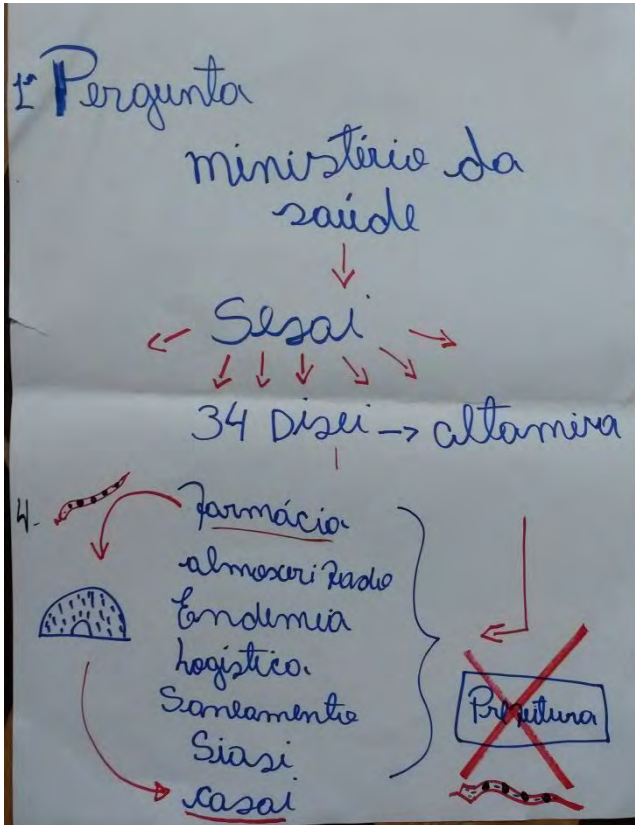 1ª Pergunta
ministério da
saúde
Sesai
34 Disei → altamira
4. Farmácia
almoxerifado
Endemia
Logística
Saneamento
Siasi
casai
Prefeitura